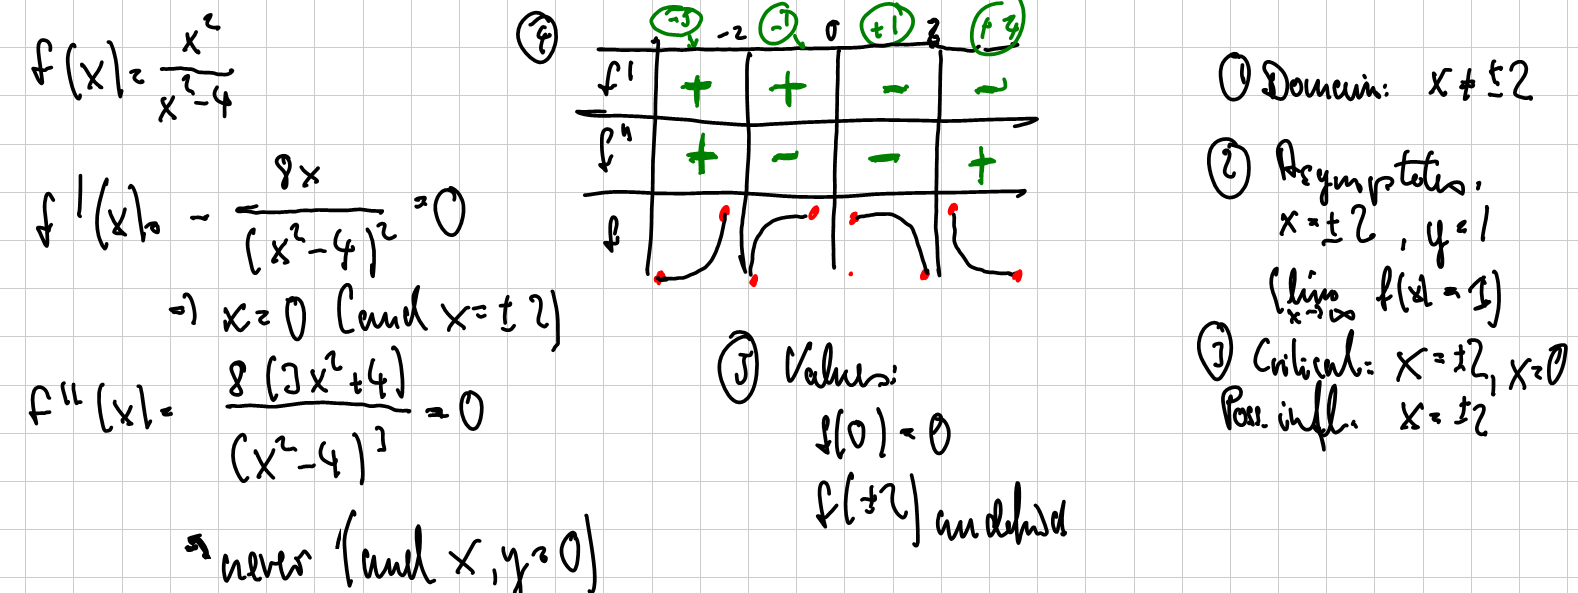 f(x) = x²/(x²-4)
f'(x) = - 8x/(x²-4)² = 0
=> x = 0 (and x = ±2)
f''(x) = 8(3x²+4)/(x²-4)³ = 0
=> never (and x, y = 0)
④ -3 -2 -1 0 +1 2 +4
f' + + - -
f'' + - - +
f
⑤ Values:
f(0) = 0
f(±2) undefined
① Domain: x ≠ ±2
② Asymptotes.
x = ±2, y = 1
(lim x→∞ f(x) = 1)
③ Critical: x = ±2, x=0
Poss. infl. x = ±2